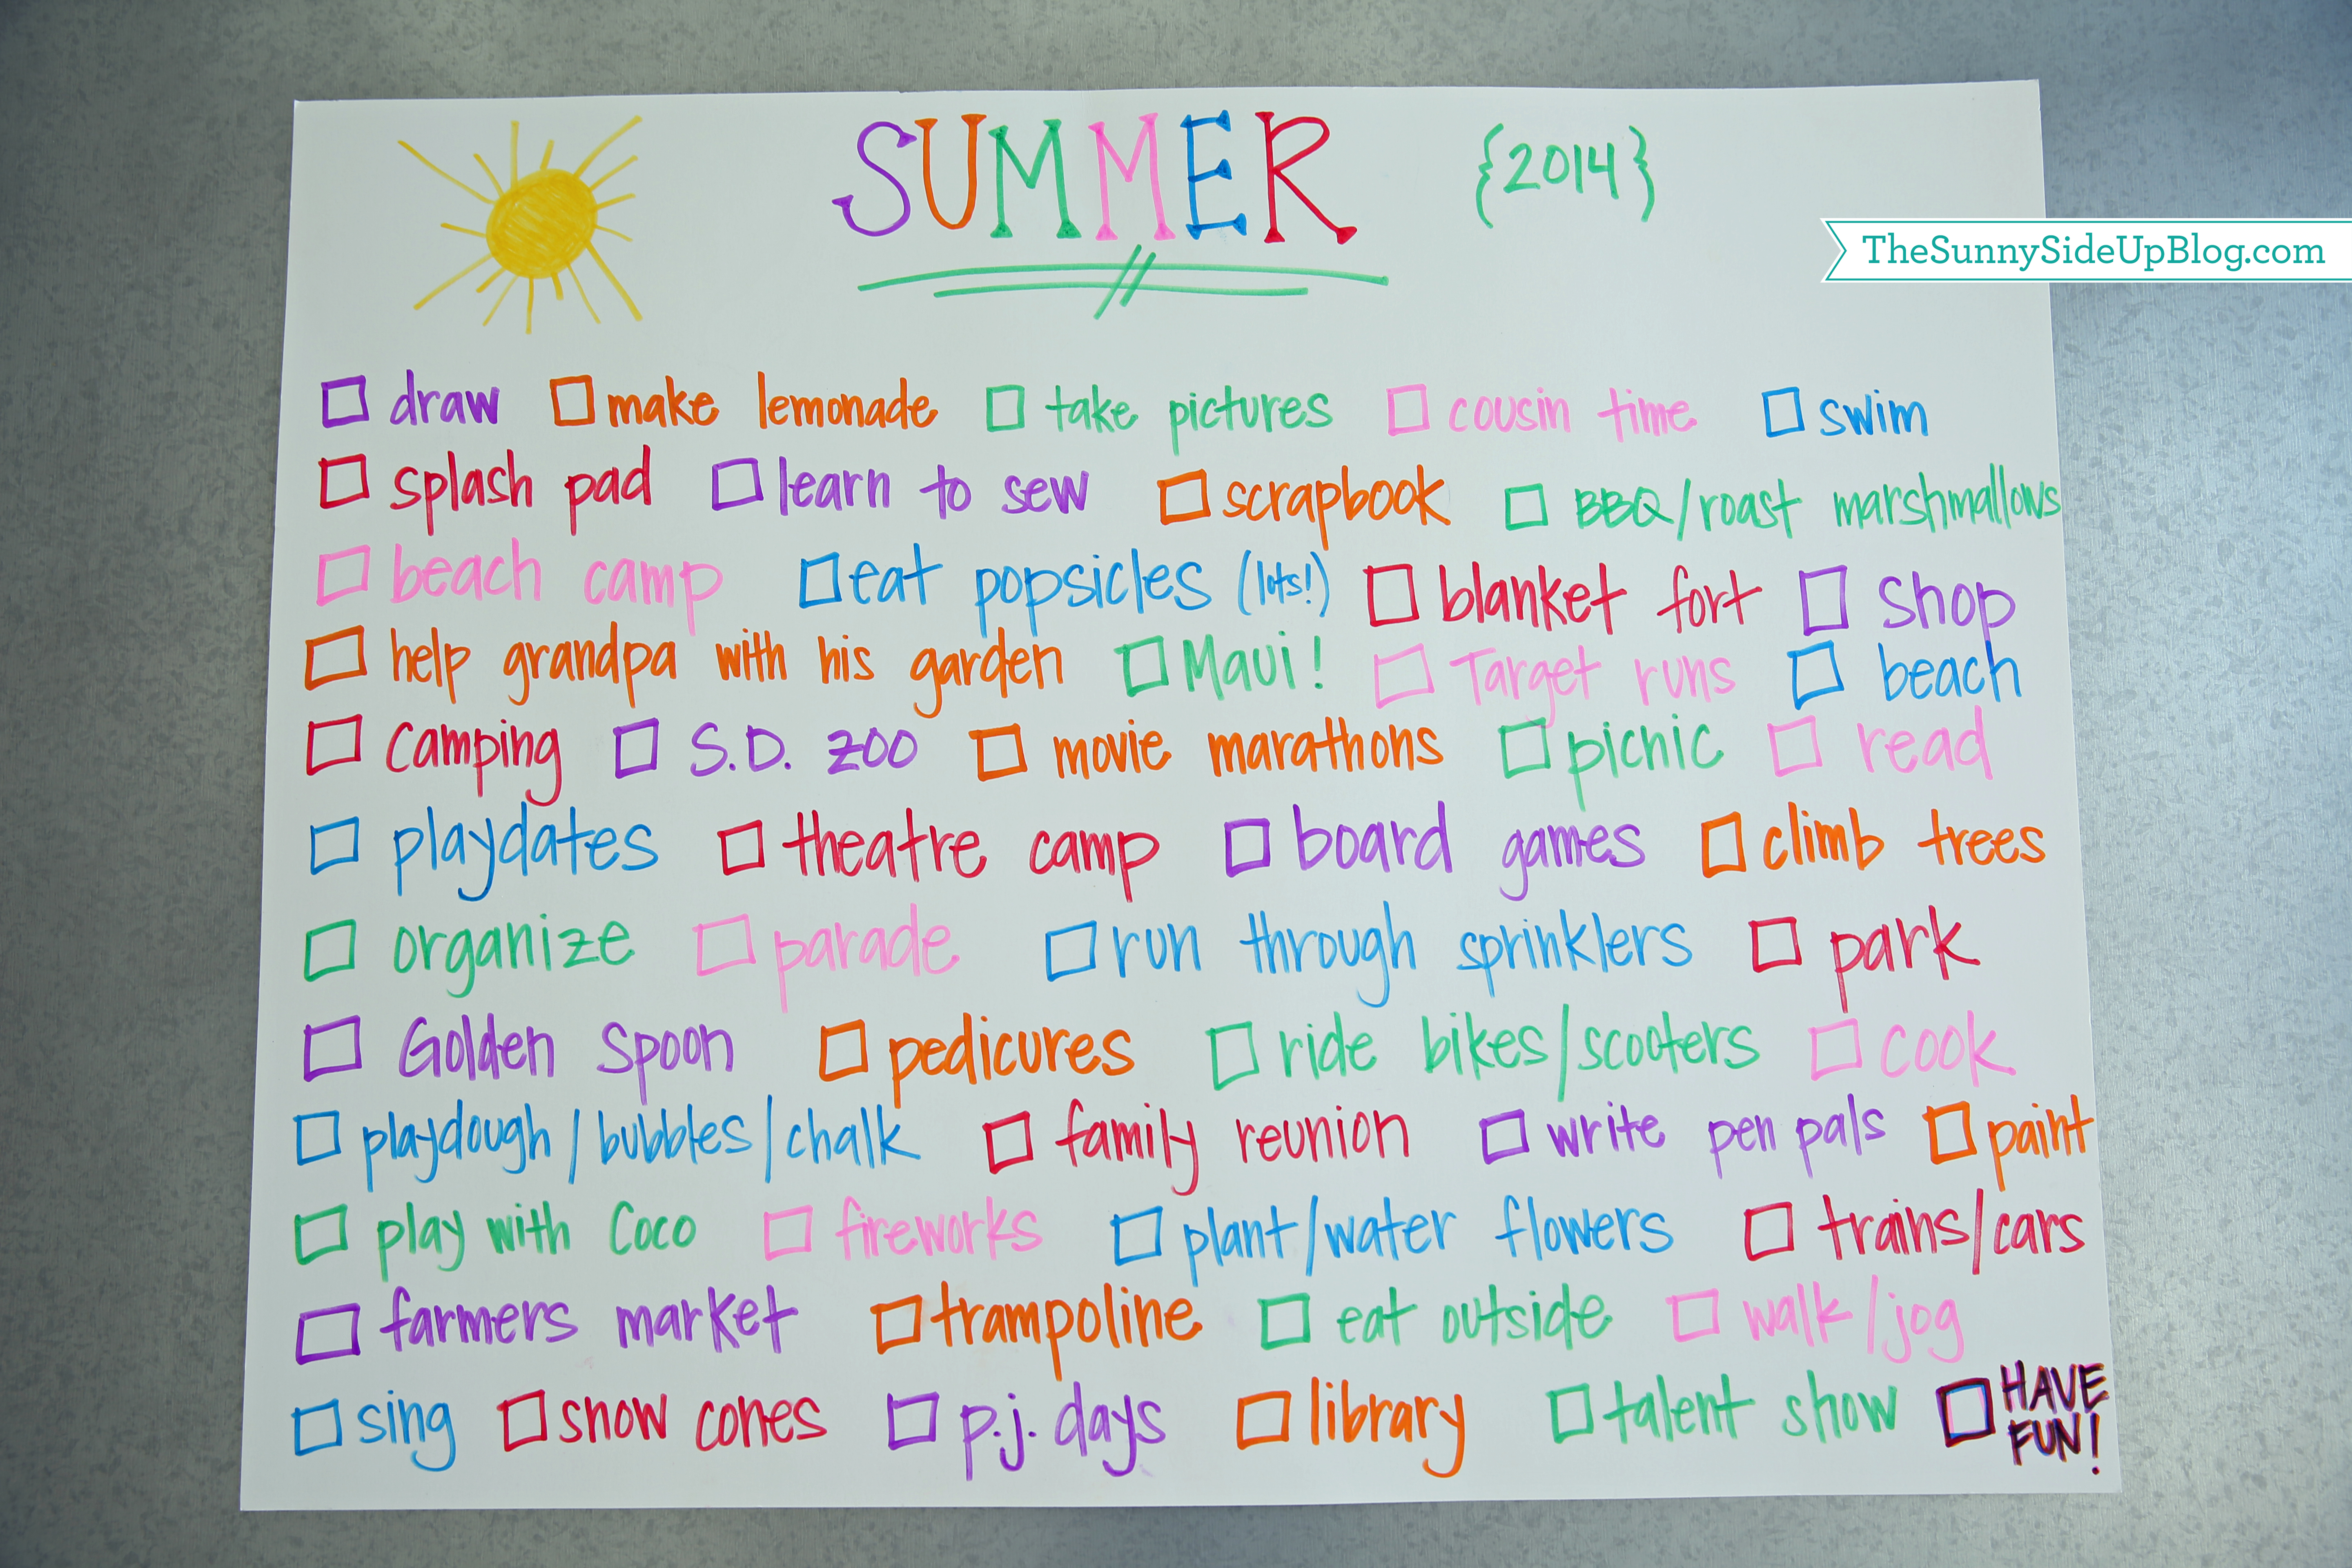 SUMMER {2014}
TheSunnySideUpBlog.com
draw make lemonade take pictures cousin time swim
splash pad learn to sew scrapbook BBQ/roast marshmallows
beach camp eat popsicles (lots!) blanket fort shop
help grandpa with his garden Maui! Target runs beach
Camping S.D. zoo movie marathons picnic read
playdates theatre camp board games climb trees
organize parade run through sprinklers park
Golden Spoon pedicures ride bikes/scooters cook
playdough/bubbles/chalk family reunion write pen pals paint
play with Coco fireworks plant/water flowers trains/cars
farmers market trampoline eat outside walk/jog
sing snow cones p.j. days library talent show HAVE
FUN!